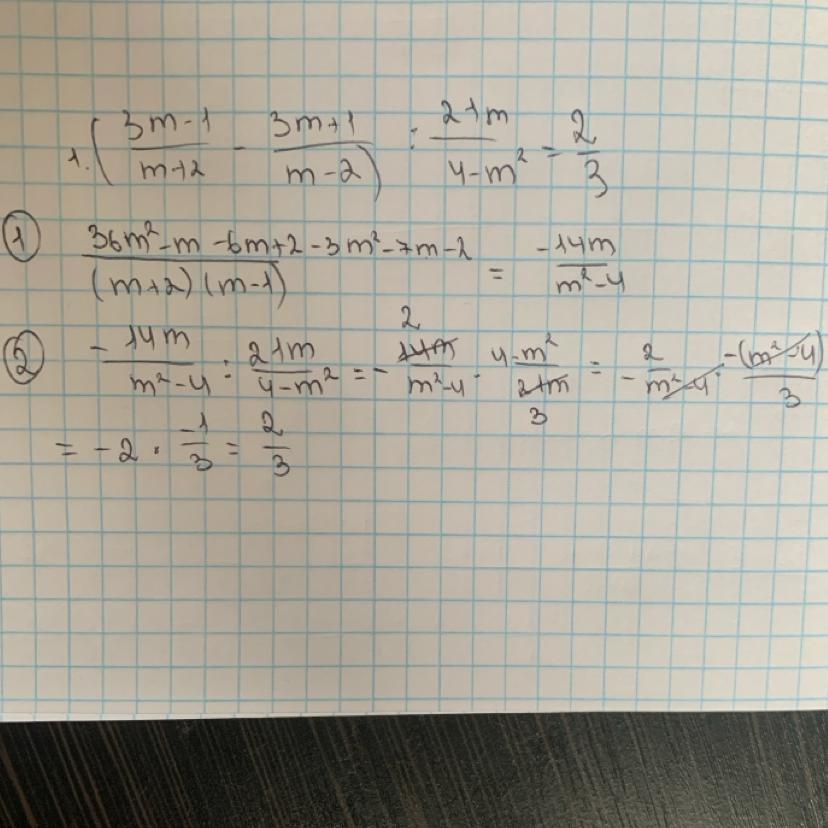 1. ( (3m-1)/(m+2) - (3m+1)/(m-2) ) : 21m/(4-m²) = 2/3
① (36m²-m-6m+2-3m²-7m-2)/((m+2)(m-1)) = -14m/(m²-4)
② -14m/(m²-4) : 21m/(4-m²) = - 14m/(m²-4) · (4-m²)/21m = - 2/(m²-4) · -(m²-4)/3
= -2 · -1/3 = 2/3